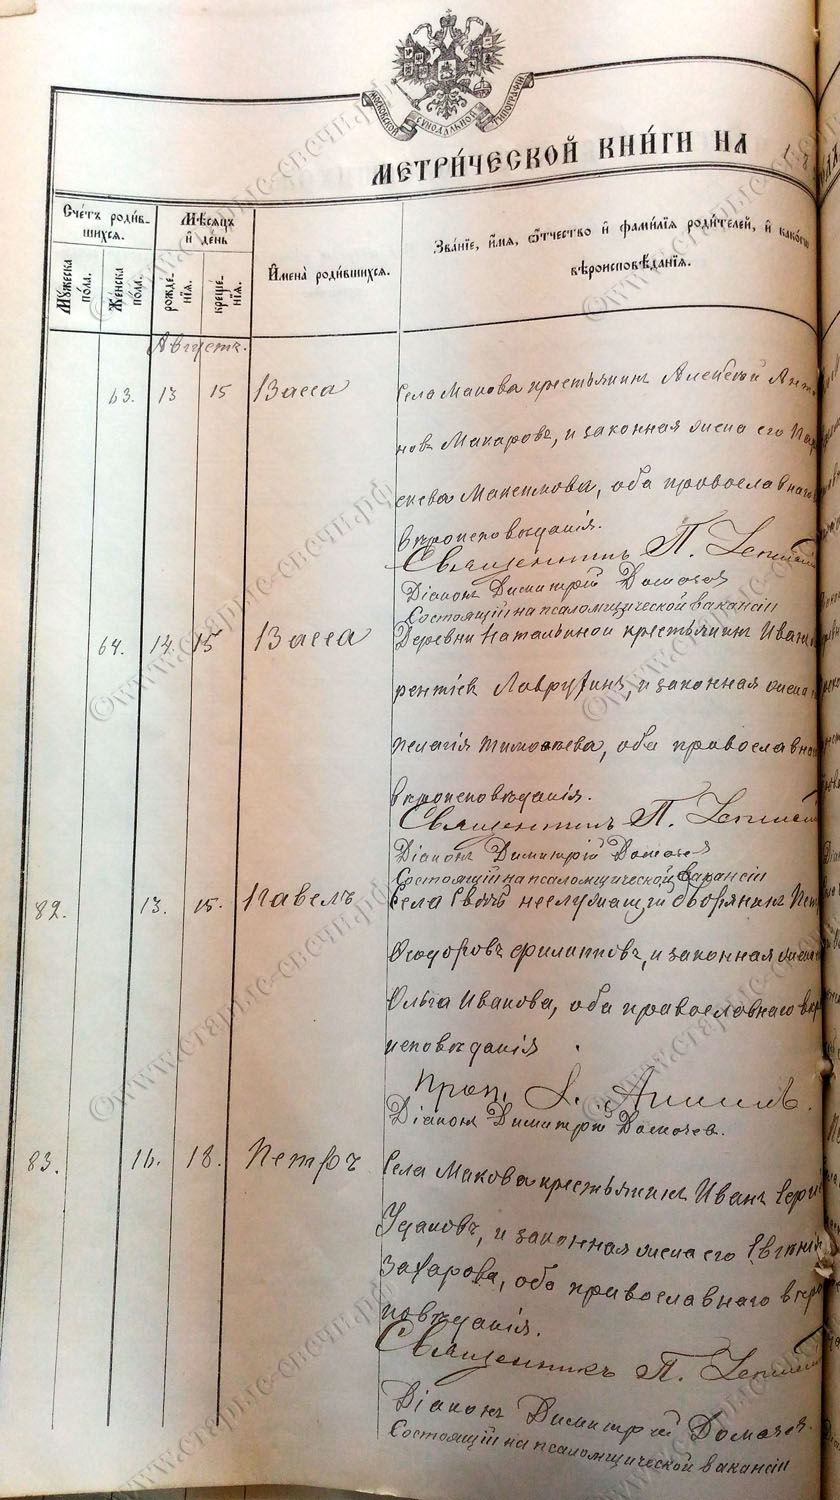 МОСКОВСКОЙ СѴНОДАЛЬНОЙ ТИПОГРАФІИ
МЕТРИ́ЧЕСКОЙ КНИ́ГИ НА
Сче́тъ роди́вшихся.
Мѣ́сяцъ и҆ де́нь
И҆мена̀ роди́вшихся.
Зва́нїе, и҆́мя, ѻ҆́тчество и҆ фами́лїя роди́телей, и҆ како́гѡ вѣроисповѣ́данїя.
Мꙋ́жеска по́ла.
Же́нска по́ла.
рожде́нїя.
креще́нїя.
Августъ.
63. 13 15 Васса
Села Макова крестьянинъ Алексѣй Анто
новъ Макаровъ, и законная жена его Пара
скева Максимова, оба православнаго
вѣроисповѣданія.
Священникъ П.
Діаконъ Димитрій Домачев
Состоящій на псаломщической вакансіи
64. 14. 15 Васса
Деревни Натальиной крестьянинъ Иванъ
рентіев Лаврухинъ, и законная жена
пелагія Тимоѳеева, оба православна
вѣроисповѣданія.
Священникъ П.
Діаконъ Димитрій Домачев
Состоящій на псаломщической вакансіи
82. 13. 15. Павелъ
Села неслужащій дворянинъ Пет
Ѳеодоровъ Филиповъ, и законная жена
Ольга Иванова, оба православнаго вѣро
исповѣданія
Діаконъ Димитрій Домачев.
83. 16. 18. Петръ
Села Макова крестьянинъ Иванъ Серги
Ушаковъ, и законная жена его Евгени
Захарова, оба православнаго вѣро
повѣданія.
Священникъ П.
Діаконъ Димитрій Домачев
Состоящій на псаломщической вакансіи
©www.старые-свечи.рф